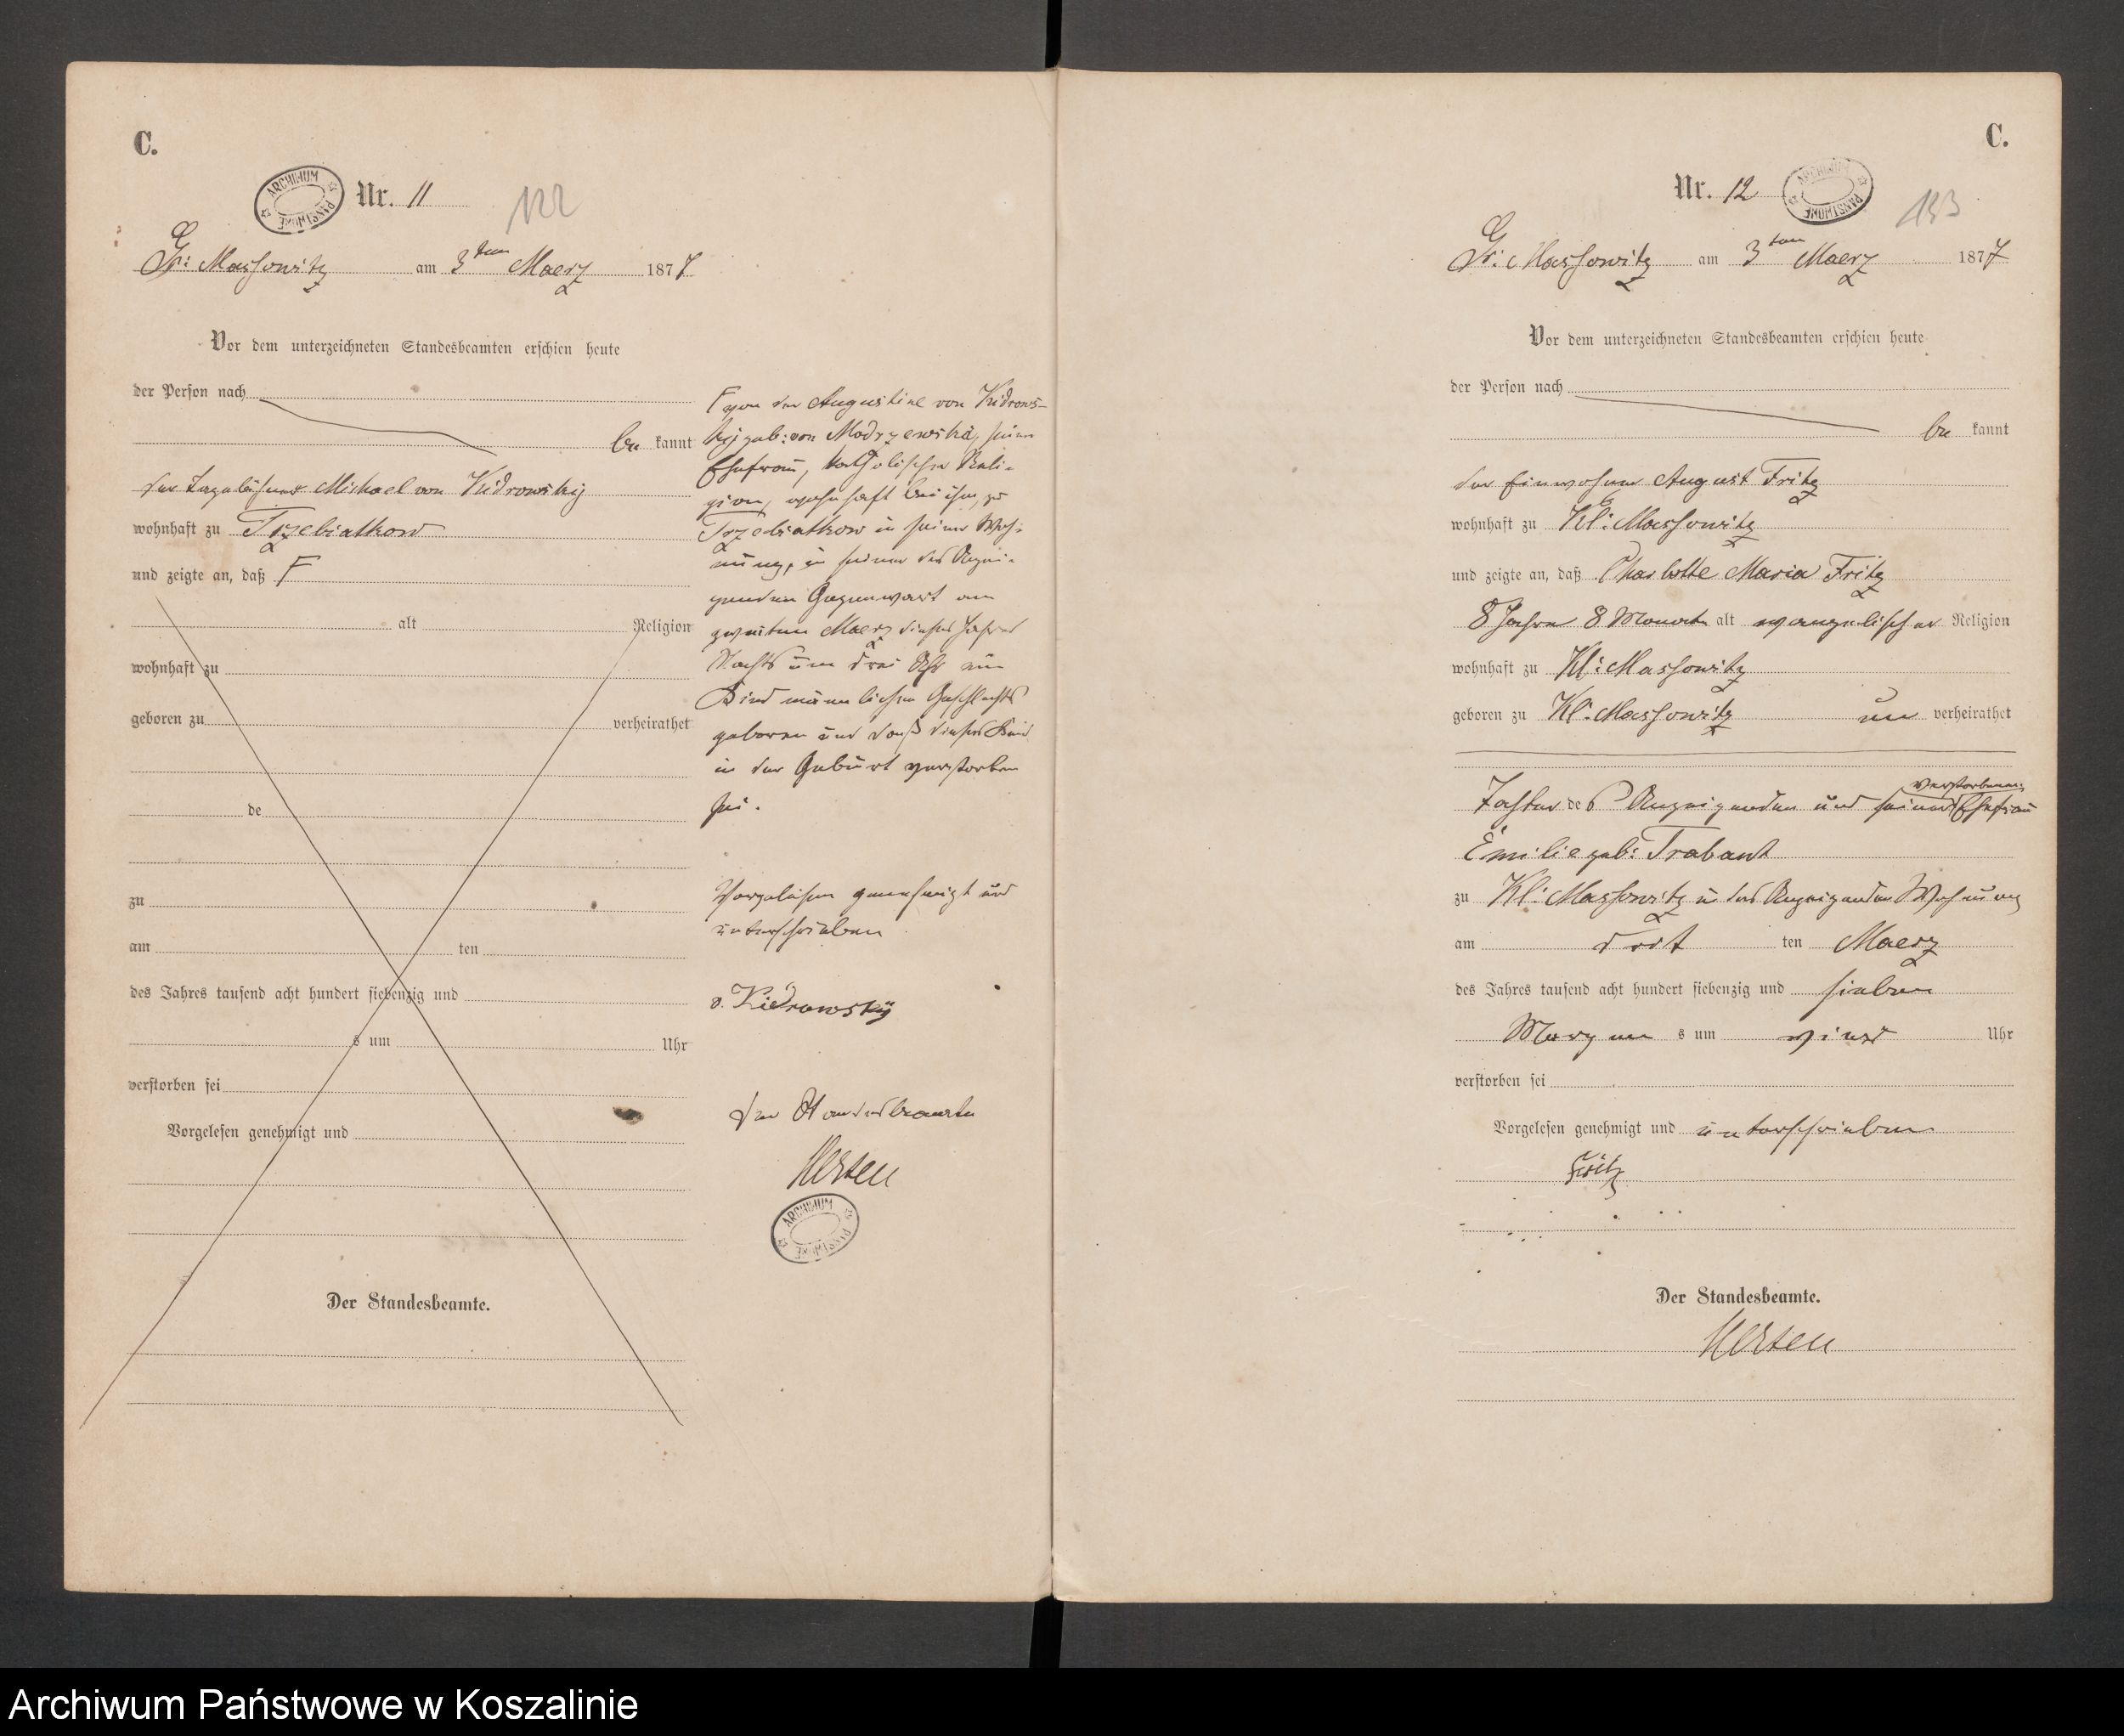 C.
ARCHIWUM PAŃSTWOWE
Nr. 11
122
Gr: Massowitz am 3ten Maerz 1877
Vor dem unterzeichneten Standesbeamten erschien heute
der Person nach
be kannt
der Tagelöhner Michael von Kidrowsky
wohnhaft zu Trzebiatkow
und zeigte an, daß F
alt Religion
wohnhaft zu
geboren zu verheirathet
de
zu
am ten
des Jahres tausend acht hundert siebenzig und
s um Uhr
verstorben sei
Vorgelesen genehmigt und
Der Standesbeamte.
F von der Augustine von Kidrows-
kij geb: von Modrzewska, seiner
Ehefrau, katholischer Reli-
gion, wohnhaft bei ihm, zu
Trzebiatkow in seiner Woh-
nung, in seiner des Anzei-
genden Gegenwart am
zweiten Maerz dieses Jahres
Nachts um drei Uhr ein
Kind männlichen Geschlechts
geboren und daß dieses Kind
in der Geburt verstorben
sei.
Vorgelesen genehmigt und
unterschrieben
v. Kiedrowskij
Der Standesbeamte
Mersen
ARCHIWUM PAŃSTWOWE
C.
Nr. 12
ARCHIWUM PAŃSTWOWE
133
Gr: Massowitz am 3ten Maerz 1877
Vor dem unterzeichneten Standesbeamten erschien heute
der Person nach
be kannt
der Einwohner August Fritz
wohnhaft zu Kl: Massowitz
und zeigte an, daß Charlotte Maria Fritz
8 Jahre 8 Monate alt evangelischer Religion
wohnhaft zu Kl: Massowitz
geboren zu Kl: Massowitz un verheirathet
verstorbenen
Tochter des Anzeigenden und seiner Ehefrau
Emilie geb: Trabant
zu Kl: Massowitz in des Anzeigenden Wohnung
am drit ten Maerz
des Jahres tausend acht hundert siebenzig und sieben
Morgen s um vier Uhr
verstorben sei
Vorgelesen genehmigt und unterschrieben
Fritz
Der Standesbeamte.
Mersen
Archiwum Państwowe w Koszalinie